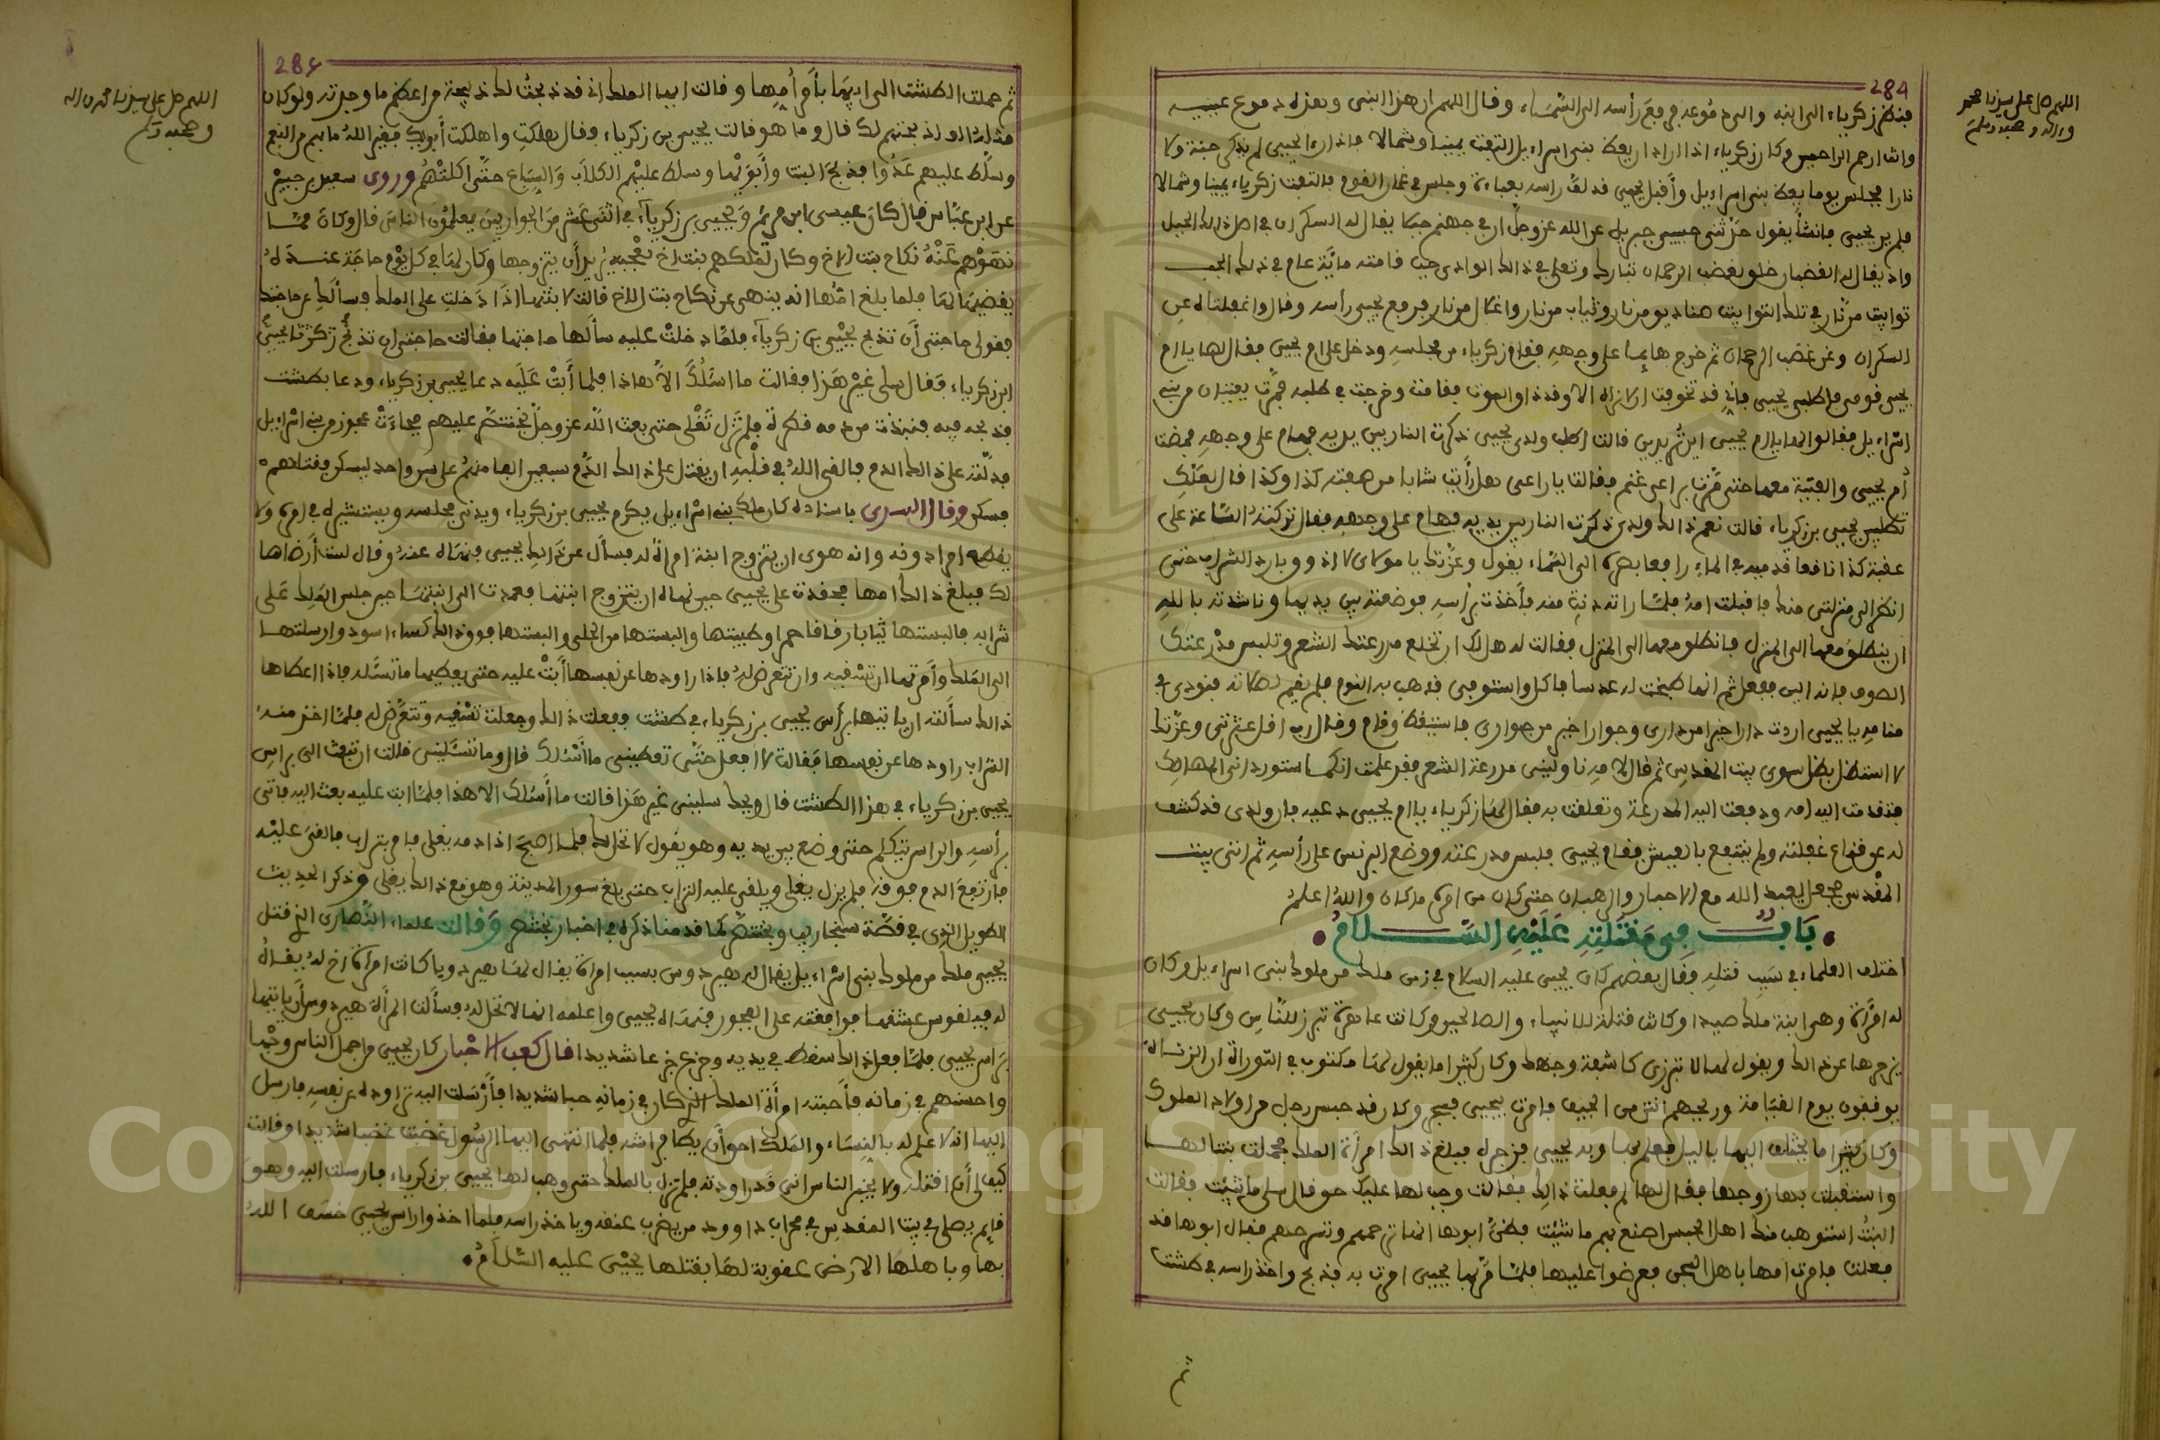 284
اللهم صل على سيدنا محمد
وءاله وصحبه وسلم
فنظر زكرياء الى ابنه والى دموعه فرفع رأسه الى السماء وقال اللهم ان هذا ابنى وهذه دموع عينيه
وانت ارحم الراحمين وكان زكرياء اذا اراد ان يعظ بنى اسراءيل التفت يمينا وشمالا فاذا رءا يحيى لم يذكر جنة ولا
نارا فجلس يوما يعظ بنى اسراءيل وأقبل يحيى قد لف راسه بعباءة وجلس فى غمار القوم فالتفت زكرياء يمينا وشمالا
فلم ير يحيى فانشأ يقول حدثنى حبيبى جبريل عن الله عز وجل ان فى جهنم جبلا يقال له السكران فى اصل ذالك الجبل
واد يقال له الغضبان خلق بغضب الرحمان تبارك وتعلى فى ذالك الوادى جب قامته مائة عام فى ذلك الجب
توابيت من نار فى تلك التوابيت صناديق من نار وثياب من نار واغلال من نار فرفع يحيى رأسه وقال واغفلتاه عن
السكران وعن غضب الرحمان ثم خرج هايما على وجهه فقام زكرياء من مجلسه ودخل على ام يحيى فقال لها يا ام
يحيى قومى فاطلبى يحيى فانى قد تخوفت ان لا نراه الا وقد ذاق الموت فقامت وخرجت فى طلبه فمرت بفتيان من بنى
اسراءيل فقالوا لها يا ام يحيى اين تريدين قالت اطلب ولدى يحيى ذكرت النار بين يديه فهام على وجهه فمضت
أم يحيى والفتية معها حتى مرت براعى غنم فقالت يا راعى هل رأيت شابا من صفته كذا وكذا قال لعلك
تطلبين يحيى بن زكرياء قالت نعم ذالك ولدى ذكرت النار بين يديه فهام على وجهه فقال تركته الساعة على
عقبة كذا ناقعا قدميه فى الماء رافعا بصره الى السماء يقول وعزتك يا مولاى لا اذوق بارد الشراب حتى
انظر الى منزلتى منك فاقبلت امه فلما راته دنت منه فأخذت برأسه فوضعته بين يديها وناشدته بالله
ان ينطلق معها الى المنزل فانطلق معها الى المنزل فقالت له هل لك ان تخلع مدرعتك الشعر وتلبس مدرعتك
الصوف فانه الين ففعل ثم انها طبخت له عدسا فاكل واستوفى فذهب به النوم فلم يقم لصلاته فنودى فى
منامه يا يحيى اردت دارا خيرا من دارى وجوارا خير من جوارى فاستيقظ وقام وقال رب اقل عثرتى وعزتك
لا استظل بظل سوى بيت المقدس ثم قال لامه ناولينى مدرعة الشعر فقد علمت انكما ستوردانى المهالك
فتقدمت اليه امه ودفعت اليه المدرعة وتعلقت به فقال لها زكرياء يا ام يحيى دعيه فان ولدى قد كشف
له عن قناع غفلته ولم ينتفع بالعيش فقام يحيى فلبس مدرعته ووضع البرنس على رأسه ثم اتى بيت
المقدس فجعل يعبد الله مع الاحبار والرهبان حتى كان من امره ما كان والله اعلم
باب فى مقتله عليه السلام
اختلف العلماء فى سبب قتله فقال بعضهم كان يحيى عليه السلام فى زمن ملك من ملوك بنى اسراءيل وكان
له امرأة وهى ابنة ملك صيدا وكانت قتلة للانبياء والصالحين وكانت عاهرة تبرز للناس وكان يحيى
يزجرها عن ذالك ويقول لها لا تبرزى كاشفة وجهك وكان كثيرا ما يقول لها مكتوب فى التوراة ان الزناة
يوقفون يوم القيامة وريحهم انتن من الجيف فامرت بيحيى فسجن وكان قد حبس رجل من اولاد الملوك
وكان كثيرا ما يختلف اليها بالليل فعلم بها وبه يحيى فزجره فبلغ ذالك امرأة الملك فحملت بنتا لها
واستقبلت بها زوجها فقال لها لم فعلت ذالك فقالت وجب لها عليك حق قال سلى ما شيت فقالت
البنت استوهب منك اهل الحبس اصنع بهم ما شيت فظن ابوها انها ترحمهم وتسرحهم فقال ابوها قد
فعلت فامرت امها باهل السجن فعرضوا عليها فلما مر بها يحيى امرت به فذبح واخذ راسه فى طشت
ثم
286
اللهم صل على سيدنا محمد وءاله
وصحبه وسلم
ثم حملت الطشت الى ابيها بأمر أمها وقالت ايها الملك انى قد ذبحت لك ذبيحة من اعظم ما وجدته ولو كان
مثله الف لذبحتهم لك قال وما هو قالت يحيى بن زكرياء فقال هلكت واهلكت أبويك فغير الله ما بهم من النعم
وسلط عليهم عدوا فذبح البنت وأبويها وسلط عليهم الكلاب والسباع حتى اكلتهم وروى سعيد بن جبير
عن ابن عباس قال كان عيسى ابن مريم ويحيى بن زكرياء فى اثنى عشر من الحواريين يعلمون الناس قال وكان مما
نهوهم عنه نكاح بنت الاخ وكان لملكهم بنت اخ تعجبه يريد أن يتزوجها وكان لها فى كل يوم حاجة عنده
يقضيها لها فلما بلغ امها انه ينهى عن نكاح بنت الاخ قالت لابنتها اذا دخلت على الملك وسألك عن حاجتك
فقولى حاجتى أن تذبح يحيى بن زكرياء فلما دخلت عليه سألها حاجتها فقالت حاجتى ان تذبح يحيى
ابن زكرياء فقال سلى غير هذا فقالت ما اسئلك الا هاذا فلما أبت عليه دعا يحيى بن زكرياء ودعا بطشت
فذبحه فيه فبذرت من دمه قطرة فلم تزل تغلى حتى بعث الله عز وجل بختنصر عليهم فجاءت عجوز من بنى اسراءيل
فدلته على ذالك الدم فالقى الله فى قلبه ان يقتل على ذالك الدم سبعين الفا منهم على سن واحد ليسكن فقتلهم
فسكن وقال السدى باسناده كان ملك بنى اسراءيل يكرم يحيى بن زكرياء ويدنى مجلسه ويستشيره فى امره ولا
يقطع امرا دونه وانه هوى ان يتزوج ابنة امراة له فسأل عن ذالك يحيى فنهاه عنه وقال لست أرضاها
لك فبلغ ذالك امها فحقدت على يحيى حين نهاه ان يتزوج ابنتها فعمدت الى ابنتها حين جلس الملك على
شرابه فالبستها ثيابا رقاقا حمرا وطيبتها والبستها من الحلى والبستها فوق ذالك كساء اسود وارسلتها
الى الملك وأمرتها ان تسقيه وان تتعرض له فاذا راودها عن نفسها أبت عليه حتى يعطيها ما تسئله فاذا اعطاها
ذالك سألته ان ياتيها برأس يحيى بن زكرياء فى طشت ففعلت ذالك وجعلت تسقيه وتتعرض له فلما اخذ منه
الشراب راودها عن نفسها فقالت لا افعل حتى تعطينى ما أسئلك قال وما تسئلينى قالت ان تبعث الى براس
يحيى بن زكرياء فى هذا الطشت قال ويحك سلينى غير هذا قالت ما أسئلك الا هذا فلما ابت عليه بعث اليه فاتى
برأسه والراس يتكلم حتى وضع بين يديه وهو يقول لا تحل لك فلما اصبح اذا دمه يغلى فامر بتراب فالقى عليه
فارتفع الدم فوقه فلم يزل يغلى ويلقى عليه التراب حتى بلغ سور المدينة وهو مع ذالك يغلى وذكر الحديث
الطويل الذى فى قصة سنجاريب وبختنصر كما قدمنا ذكره فى اخبار بختنصر وقالت علماء النصارى الذى قتل
يحيى ملك من ملوك بنى اسراءيل يقال له هيردوس بسبب امراة يقال لها هيردويا كانت امرأة اخ له يقال
له فيلفوس عشقها فوافقته على الفجور فنهاه يحيى واعلمه انها لا تحل له فسألت المرأة هيردوس أن ياتيها
براس يحيى فلما فعل ذالك سقط فى يديه وجزع جزعا شديدا قال كعب الاحبار كان يحيى من اجمل الناس وجها
واحسنهم فى زمانه فأحبته امرأة الملك الذى كان فى زمانه حبا شديدا فأرسلت اليه تراوده عن نفسه فارسل
اليها انه لا علم له بالنساء والملك احق أن يطأ فراشه فلما انتهى اليها الرسول غضبت غضبا شديدا وقالت
كيف لى أن اقتله ولا يخبر الناس انى قد راودته فلم تزل بالملك حتى وهب لها يحيى بن زكرياء فارسلت اليه وهو
قايم يصلى فى بيت المقدس فى محراب داوود من يضرب عنقه وياخذ راسه فلما اخذوا راس يحيى خسف الله
بها وباهلها الارض عقوبة لها بقتلها يحيى عليه السلام
Copyright © King Saud University